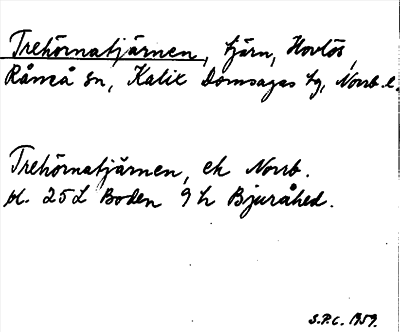 Trehörnatjärnen, tjärn, Hovlös,
Råneå sn, Kalix Domsagas tg, Norrb. l.
Trehörnatjärnen, ek Norrb.
bl. 25 L Boden 9 h Bjuråhed.
S.P.C. 1959.